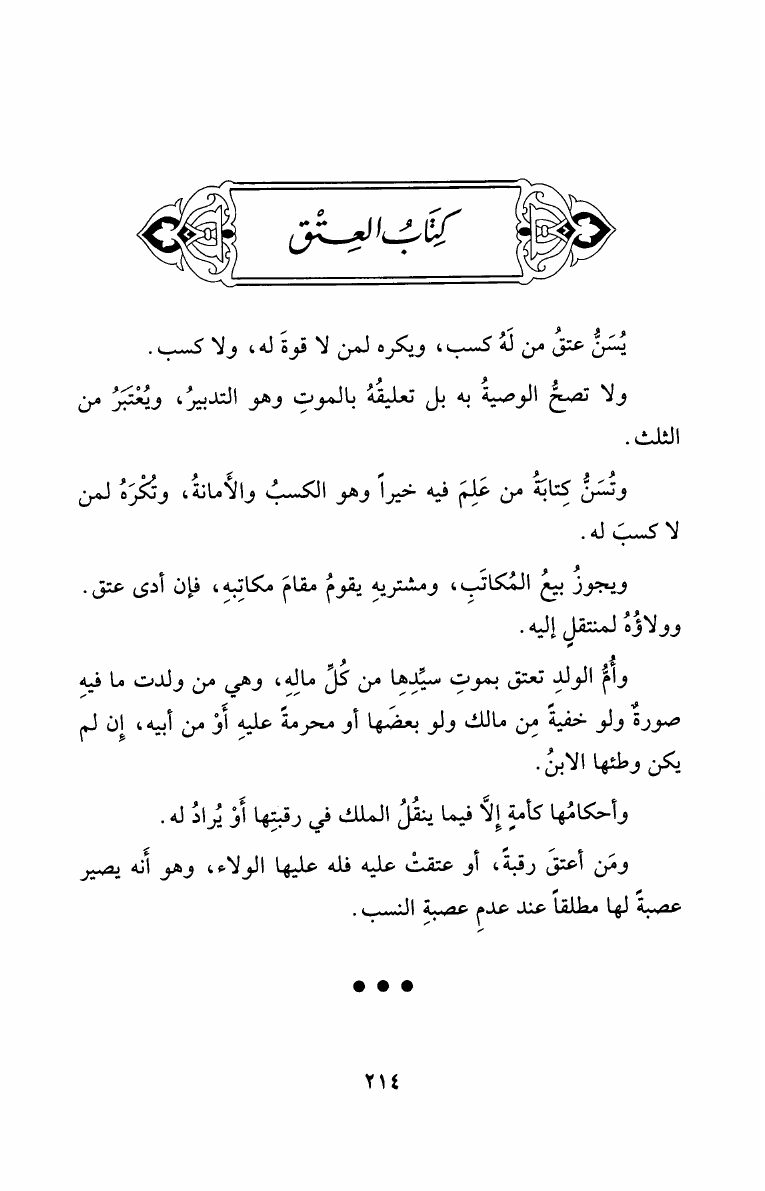 كِتَابُ العِتْق
يُسَنُّ عتقُ من لَهُ كسب، ويكره لمن لا قوةَ له، ولا كسب.
ولا تصحُّ الوصيةُ به بل تعليقُهُ بالموتِ وهو التدبيرُ، ويُعْتَبَرُ من
الثلث.
وتُسَنُّ كِتابَةُ من عَلِمَ فيه خيراً وهو الكسبُ والأَمانةُ، وتُكْرَهُ لمن
لا كسبَ له.
ويجوزُ بيعُ المُكاتَبِ، ومشتريهِ يقومُ مقامَ مكاتِبهِ، فإن أدى عتق.
وولاؤُهُ لمنتقلٍ إليه.
وأُمُّ الولدِ تعتق بموتِ سيِّدِها من كُلِّ مالِهِ، وهي من ولدت ما فيهِ
صورةٌ ولو خفيةً مِن مالك ولو بعضَها أو محرمةً عليهِ أَوْ من أبيه، إِن لم
يكن وطئها الابنُ.
وأحكامُها كأمةٍ إِلَّا فيما ينقُلُ الملك في رقبتِها أَوْ يُرادُ له.
ومَن أعتقَ رقبةً، أو عتقتْ عليه فله عليها الولاء، وهو أَنه يصير
عصبةً لها مطلقاً عند عدمِ عصبةِ النسب.
● ● ●
٢١٤